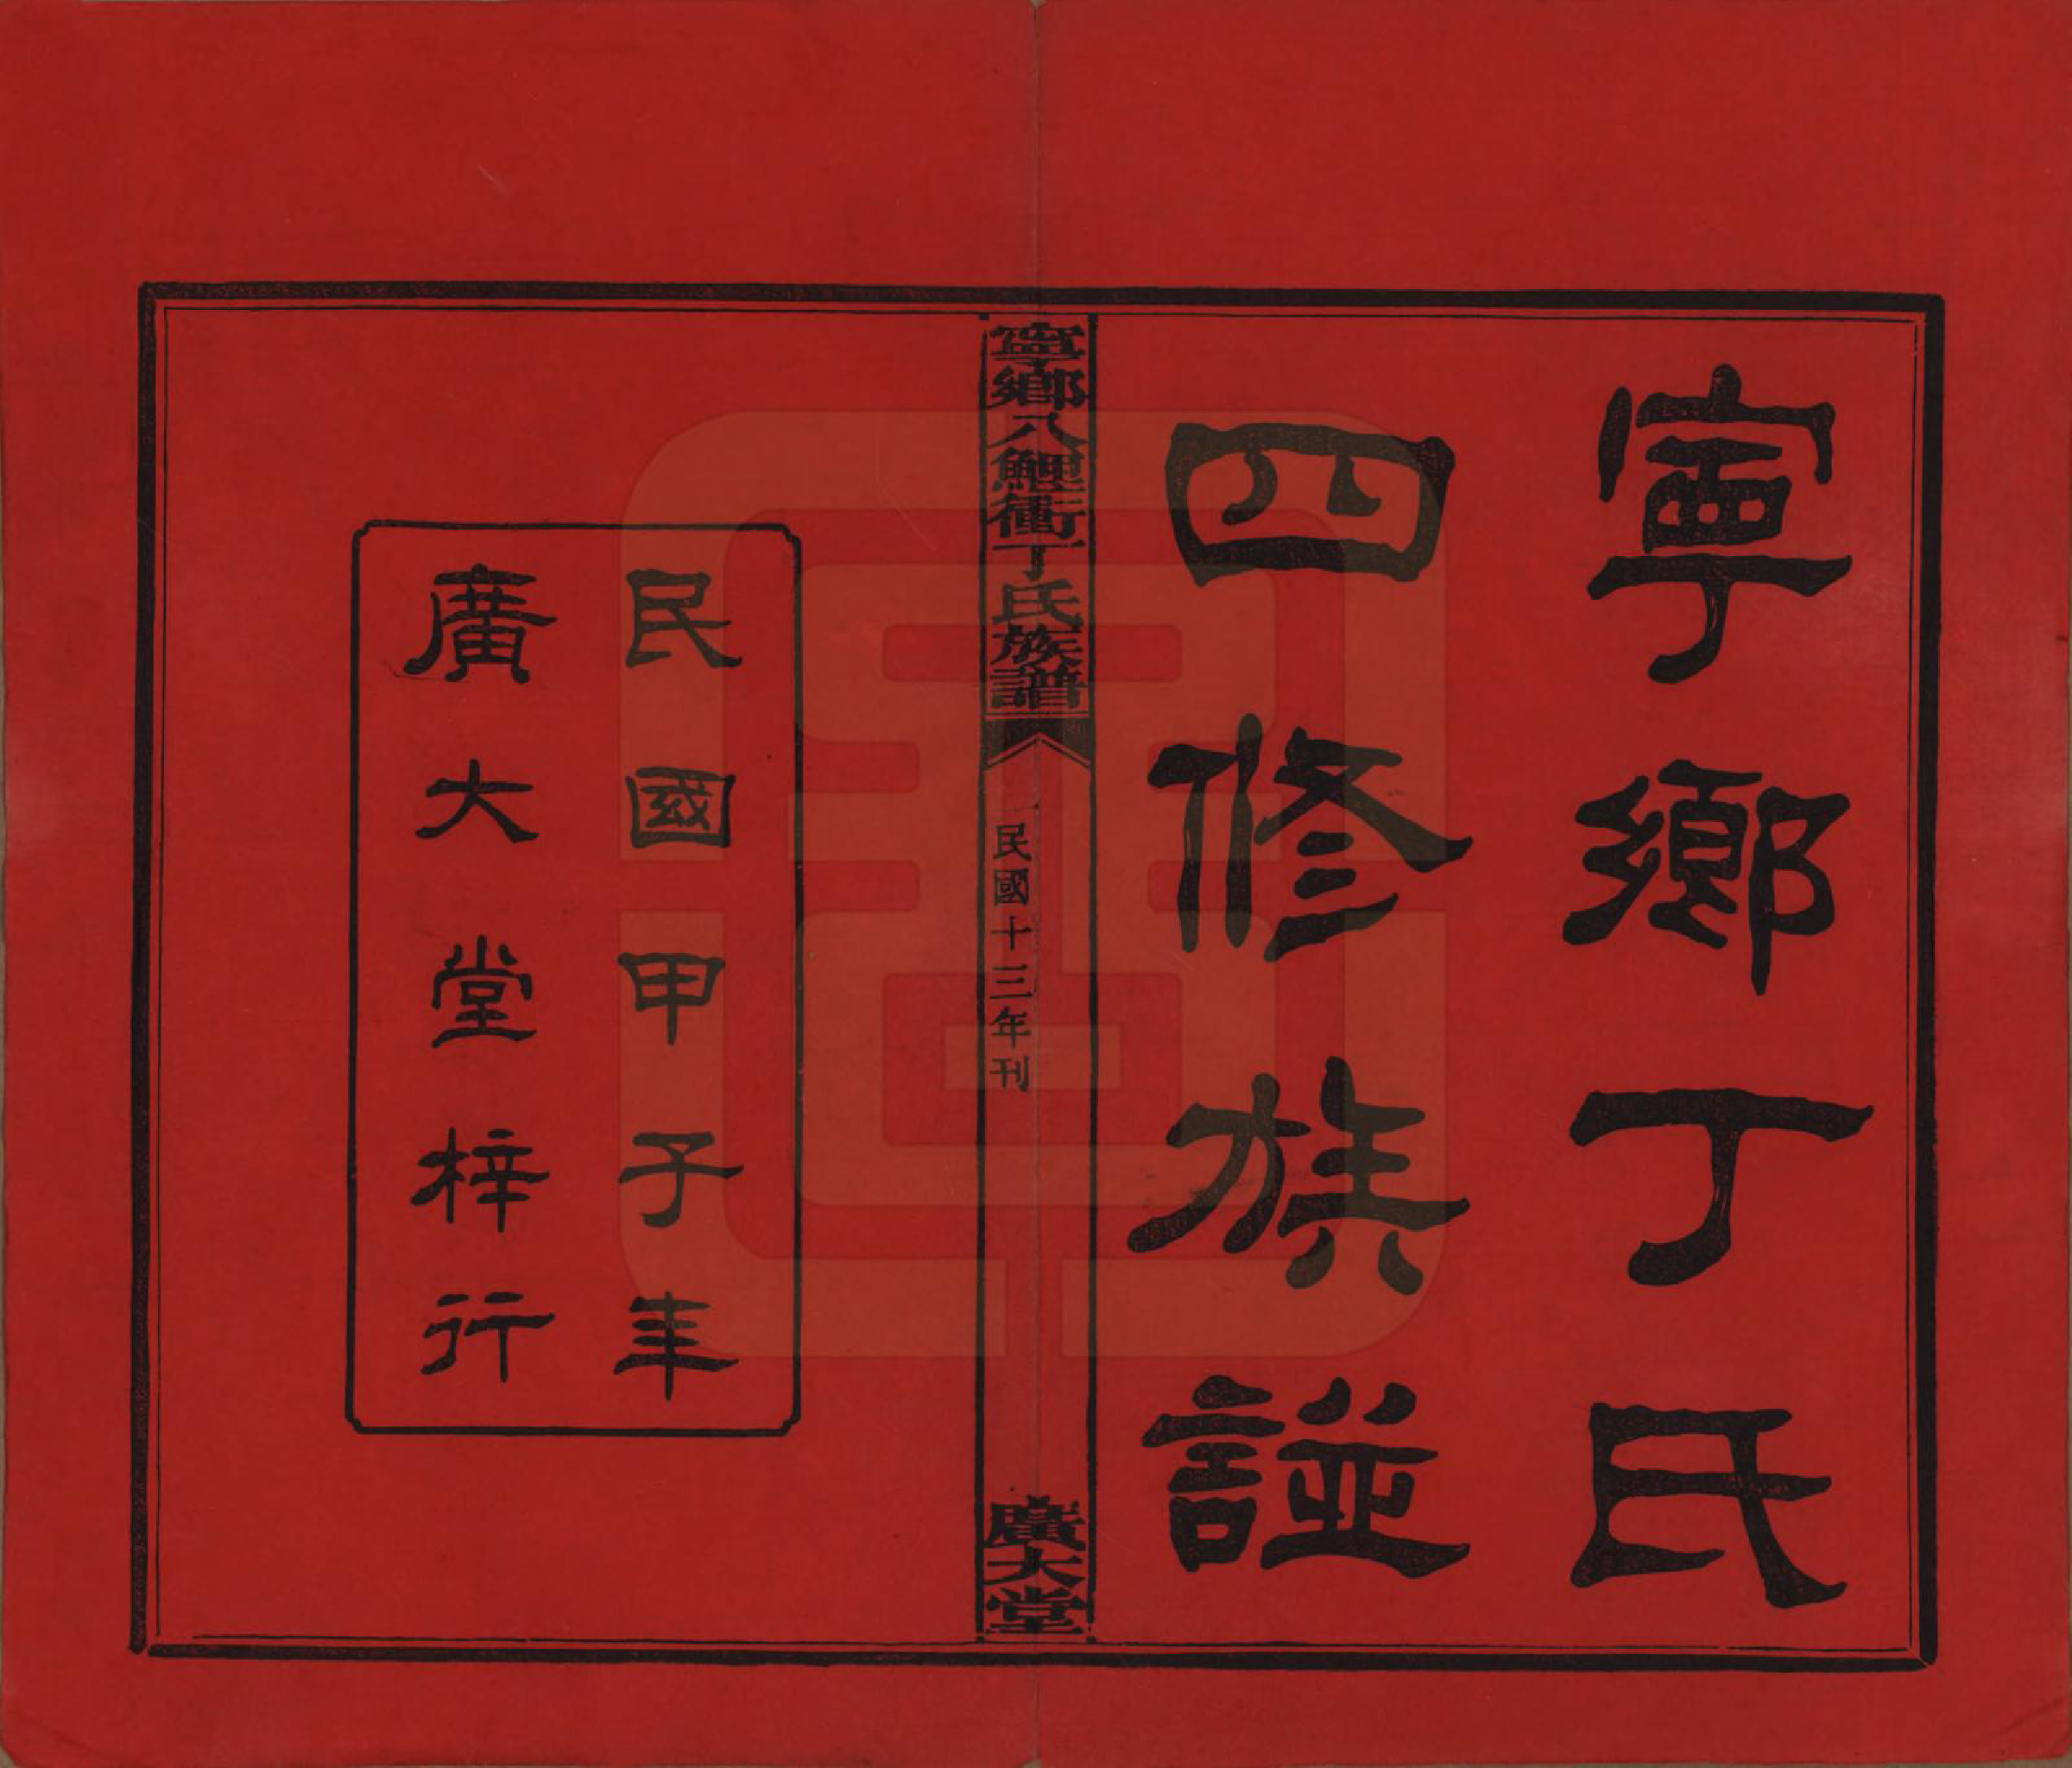 寧鄉丁氏
四修族譜
寧鄉八鯉衝丁氏族譜
民國十三年刊
廣大堂
民國甲子年
廣大堂梓行